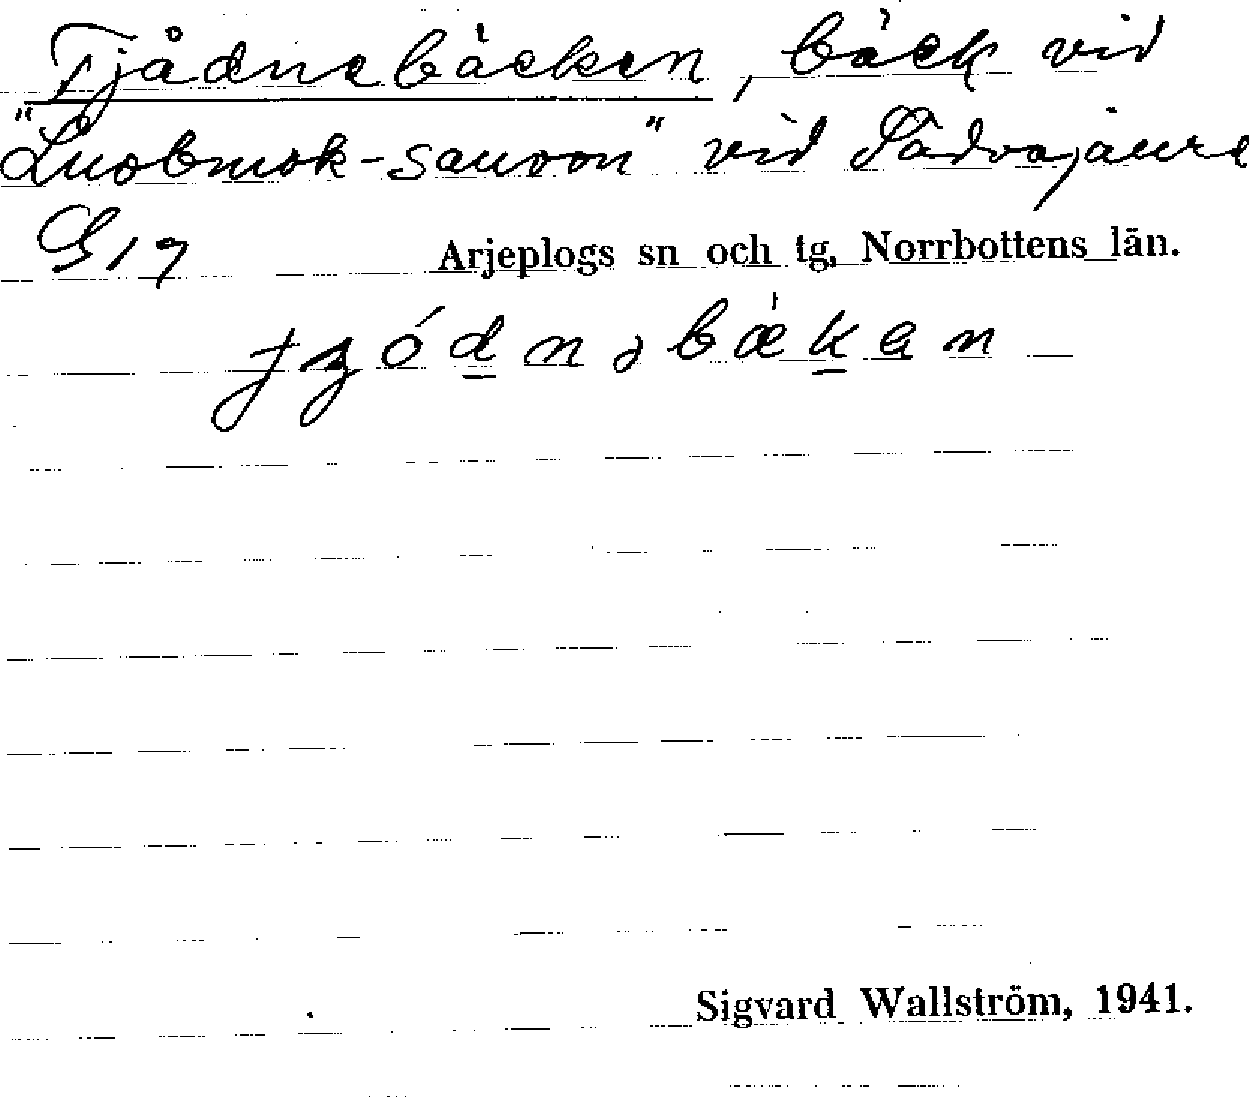 Tjådnebäcken, bäck vid
"Luobmok-sauvon" vid Sädvajaure
G 17 Arjeplogs sn och tg, Norrbottens län.
Sigvard Wallström, 1941.